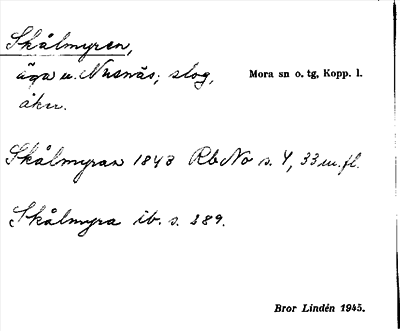 Skålmyren,
äga u. Nusnäs; slog,
Mora sn o. tg, Kopp. l.
åker.
Skålmyran 1843 Rb No s. 4, 33 m. fl.
Skålmyra ib. s. 289.
Bror Lindén 1945.